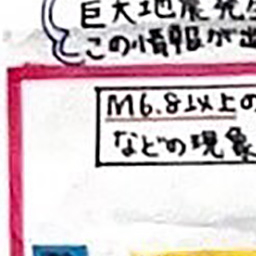 巨大地震発生
この情報が出
M6.8以上の
などの現象